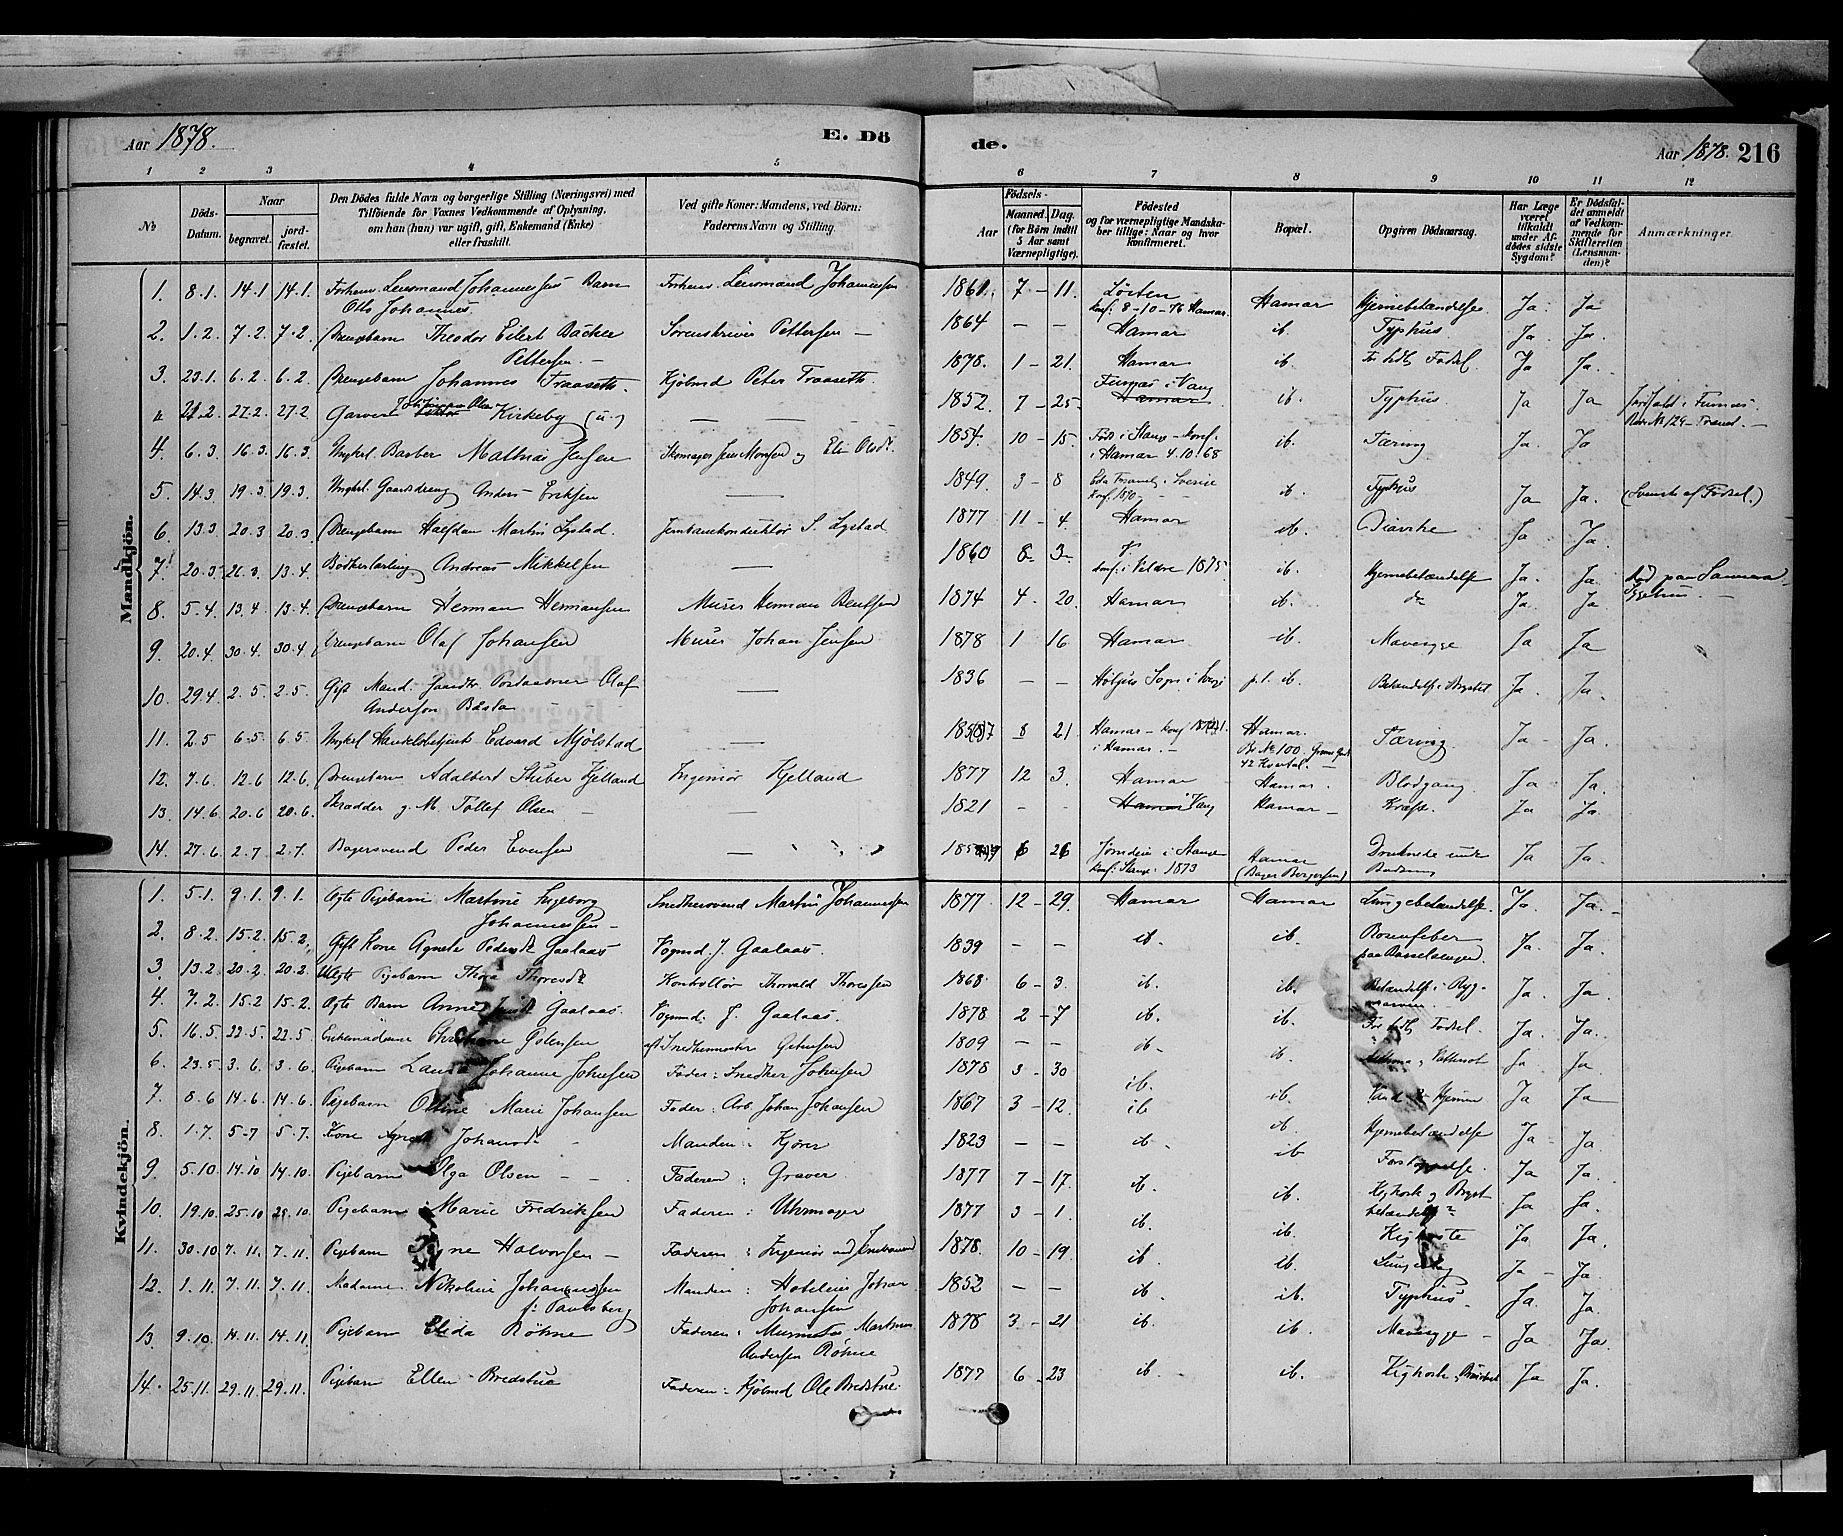 Aar 1878.
E. Dö
de.
Aar 1878. 216
1 2 3 4 5
6 7 8 9 10 11 12
No
Döds-Datum.
Naar
begravet.
jord-fæstet.
Den Dödes fulde Navn og borgerlige Stilling (Næringsvei) med
Tilföiende for Voxnes Vedkommende af Oplysning,
om han (hun) var ugift, gift, Enkemand (Enke)
eller fraskilt.
Ved gifte Koner: Mandens, ved Börn:
Faderens Navn og Stilling.
Födsels-
Aar
Maaned. Dag.
(for Börn indtil
5 Aar samt
Værnepligtige).
Födested
og for værnepligtige Mandska-
ber tillige: Naar og hvor
konfirmeret.
Bopæl.
Opgiven Dödsaarsag.
Har Læge
været
tilkaldt
under Af-
dödes sidste
Sygdom?
Er Dödsfal-
det anmeldt
af Vedkom-
mende for
Skifteretten
(Lensman-
den)?
Anmærkninger.
Mandkjön.
1. 8.1. 14.1 14.1. Forhenv. Lensmand Johannesens Barn Forhenv. Lensmand Johannesen 1861. 7 - 11. Løiten Hamar Hjernebetændelse. Ja Ja
Otto Johannes. Konf. 8-10-76 Hamar.
2. 1.2. 7.2. 7.2. Drengebarn Theodor Eilert Backer Sorenskriver Pettersen — 1864 — — Hamar ib. Typhus Ja. Ja.
Pettersen. —
3. 23.1. 6.2. 6.2. Drengebarn Johannes Traaseth. Kjøbmd Peter Traaseth. 1878. 1 - 21. Hamar ib. For tidl. Fødsel. Ja Ja.
21.2. 27.2. 27.2 Garver Olsen Kirkeby (u.) — 1852. 7 - 25. Furnæs i Vang Hamar ib. Typhus. Ja Ja
4. 6.3. 16.3. 16.3. Ungkel. Barber Mathias Jensen Skomager Jens Monsen og Eli Olsdt. 1854. 10 - 15. Født i Stange - konf. i Hamar 4.10.68 ib. Tæring Ja. Ja
5. 14.3 19.3. 19.3. Ungkel. Gaardsdreng Anders Eriksen — 1849. 3 - 8 i Sverige ib. Typhus Ja Ja. (Svensk af Fødsel.)
6. 13.3 20.3 20.3 Drengebarn Halfdan Martin Lystad. Jernbanekonduktør S. Lystad 1877 11 - 4. Hamar ib. Diarrhe Ja. Ja.
7. 20.3. 26.3. 13.4. Bødkerlærling Andreas Mikkelsen — 1860 8 - 3 konf. i Veldre 1875 ib. Hjernebetændelse Ja. Ja.
8. 5.4 13.4 13.4. Drengebarn Herman Hermansen Murer Herman Bentsen 1874 4 - 20. Hamar ib. do Ja. Ja
9. 20.4. 30.4. 30.4. Drengebarn Olaf Johansen Murer Johan Jensen 1878 1 16 Hamar ib. Mavesyge Ja Ja
10. 29.4 2.5 2.5. Gift Mand. Olaf — 1836 — — p.t. ib. Betændelse i Brystet Ja. Ja.
Anderson
11. 2.5 6.5 6.5 Ungkel Handelsbetjent Edvard Mjølstad — 8 21 Hamar - konf. i Hamar. — Hamar. Tæring. Ja — Ja.
42 Kvartal. —
12. 7.6. 12.6 12.6. Drengebarn Adalbert Stuber Kjelland Ingeniør Kjelland 1877 12 3. Hamar Hamar. Blodgang Ja Ja.
13. 14.6. 20.6 20.6. Skrædder g. M. Tollef Olsen — — 1821 — — Hamar Vang Hamar — Kræft. Ja Ja.
14. 27.6. 2.7 2.7. Bagersvend Peder Evensen — 6 26 i Stange konf. Stange 1873 Hamar (Bager Bergersen) Druknede under Badning Ja Ja.
Kvindekjön.
1. 5.1. 9.1. 9.1. Ægte Pigebarn Martine Ingeborg Snedkersvend Martin Johannessen 1877 12 - 29. Hamar Hamar Lungebetændelse. Ja. Ja. -
Johannessen —
2. 8.2. 15.2. 15.2. Gift Kone Agnete Pedersdt. Gaalaas Vognmd. J. Gaalaas. 1839 — — ib. ib. Rosenfeber paa Barselsengen. Ja. Ja.
3. 13.2 20.2 20.2. Pigebarn Thora Thoresdt Kontrollør Thorvald Thoresen 1868 6 - 3. ib. ib. Betændelse i Ryg- Ja. Ja.
4. 7.2. 15.2 15.2. Ægte Barn Anne Gaalaas. Vognmd. J. Gaalaas. 1878 2 - 7 ib. ib. For tidl. Fødsel. Ja. Ja.
5. 16.5. 22.5. 22.5 Enkemadame Christiane 1809 — — ib - ib. Vattersot Ja. Ja.
6. 23.5. 3.6. 3.6. Pigebarn Laura Johanne Johnsen Fader: Snedker Johnsen 1878 3 - 30 ib. ib. Vand i Hjernen Ja Ja
7. 8.6 14.6. 14.6. Pigebarn Oline Marie Johansen Fader: Arb. Johan Johansen 1867 3 - 12. ib ib. Hjernebetændelse Ja Ja.
8. 1.7. 5.7 5.7. Kone Johansdt. Manden: Kjører 1823 — — ib. ib Forstoppelse. Ja Ja.
9. 5.10. 14.10 14.10. Pigebarn Olga Olsen — — Faderen: Graver 1877 7 - 17. ib. ib. Kighoste og Bryst- betændelse Ja Ja.
10. 19.10. 25.10 25.10. Pigebarn Marie Fredriksen Faderen: Uhrmager 1877 3 - 1. ib. ib. Kighoste Ja Ja.
11. 30.10 7.11. 7.11. Pigebarn Signe Halvorsen — Faderen: Ingeniør ved Jernbanen 1878. 10 - 19. ib. ib. Ja — Ja.
12. 1.11. 7.11. 7.11. Madame Nikoline Johannesen Manden: Hoteleier Johan 1852 — — ib. ib. Typhus. Ja. Ja.
f: Paulsberg Johansen
13. 9.10. 14.11. 14.11. Pigebarn Elida Røhne Faderen: Murmester Martinus 1878 3 - 21 ib. ib. Mavesyge — Ja Ja.
Andersen Røhne
14. 25.11. 29.11. 29.11. Pigebarn Ellen Bredstue Faderen: Kjøbmd Ole Bredstue. 1877 6 - 23 ib. ib. Kighoste Ja Ja.